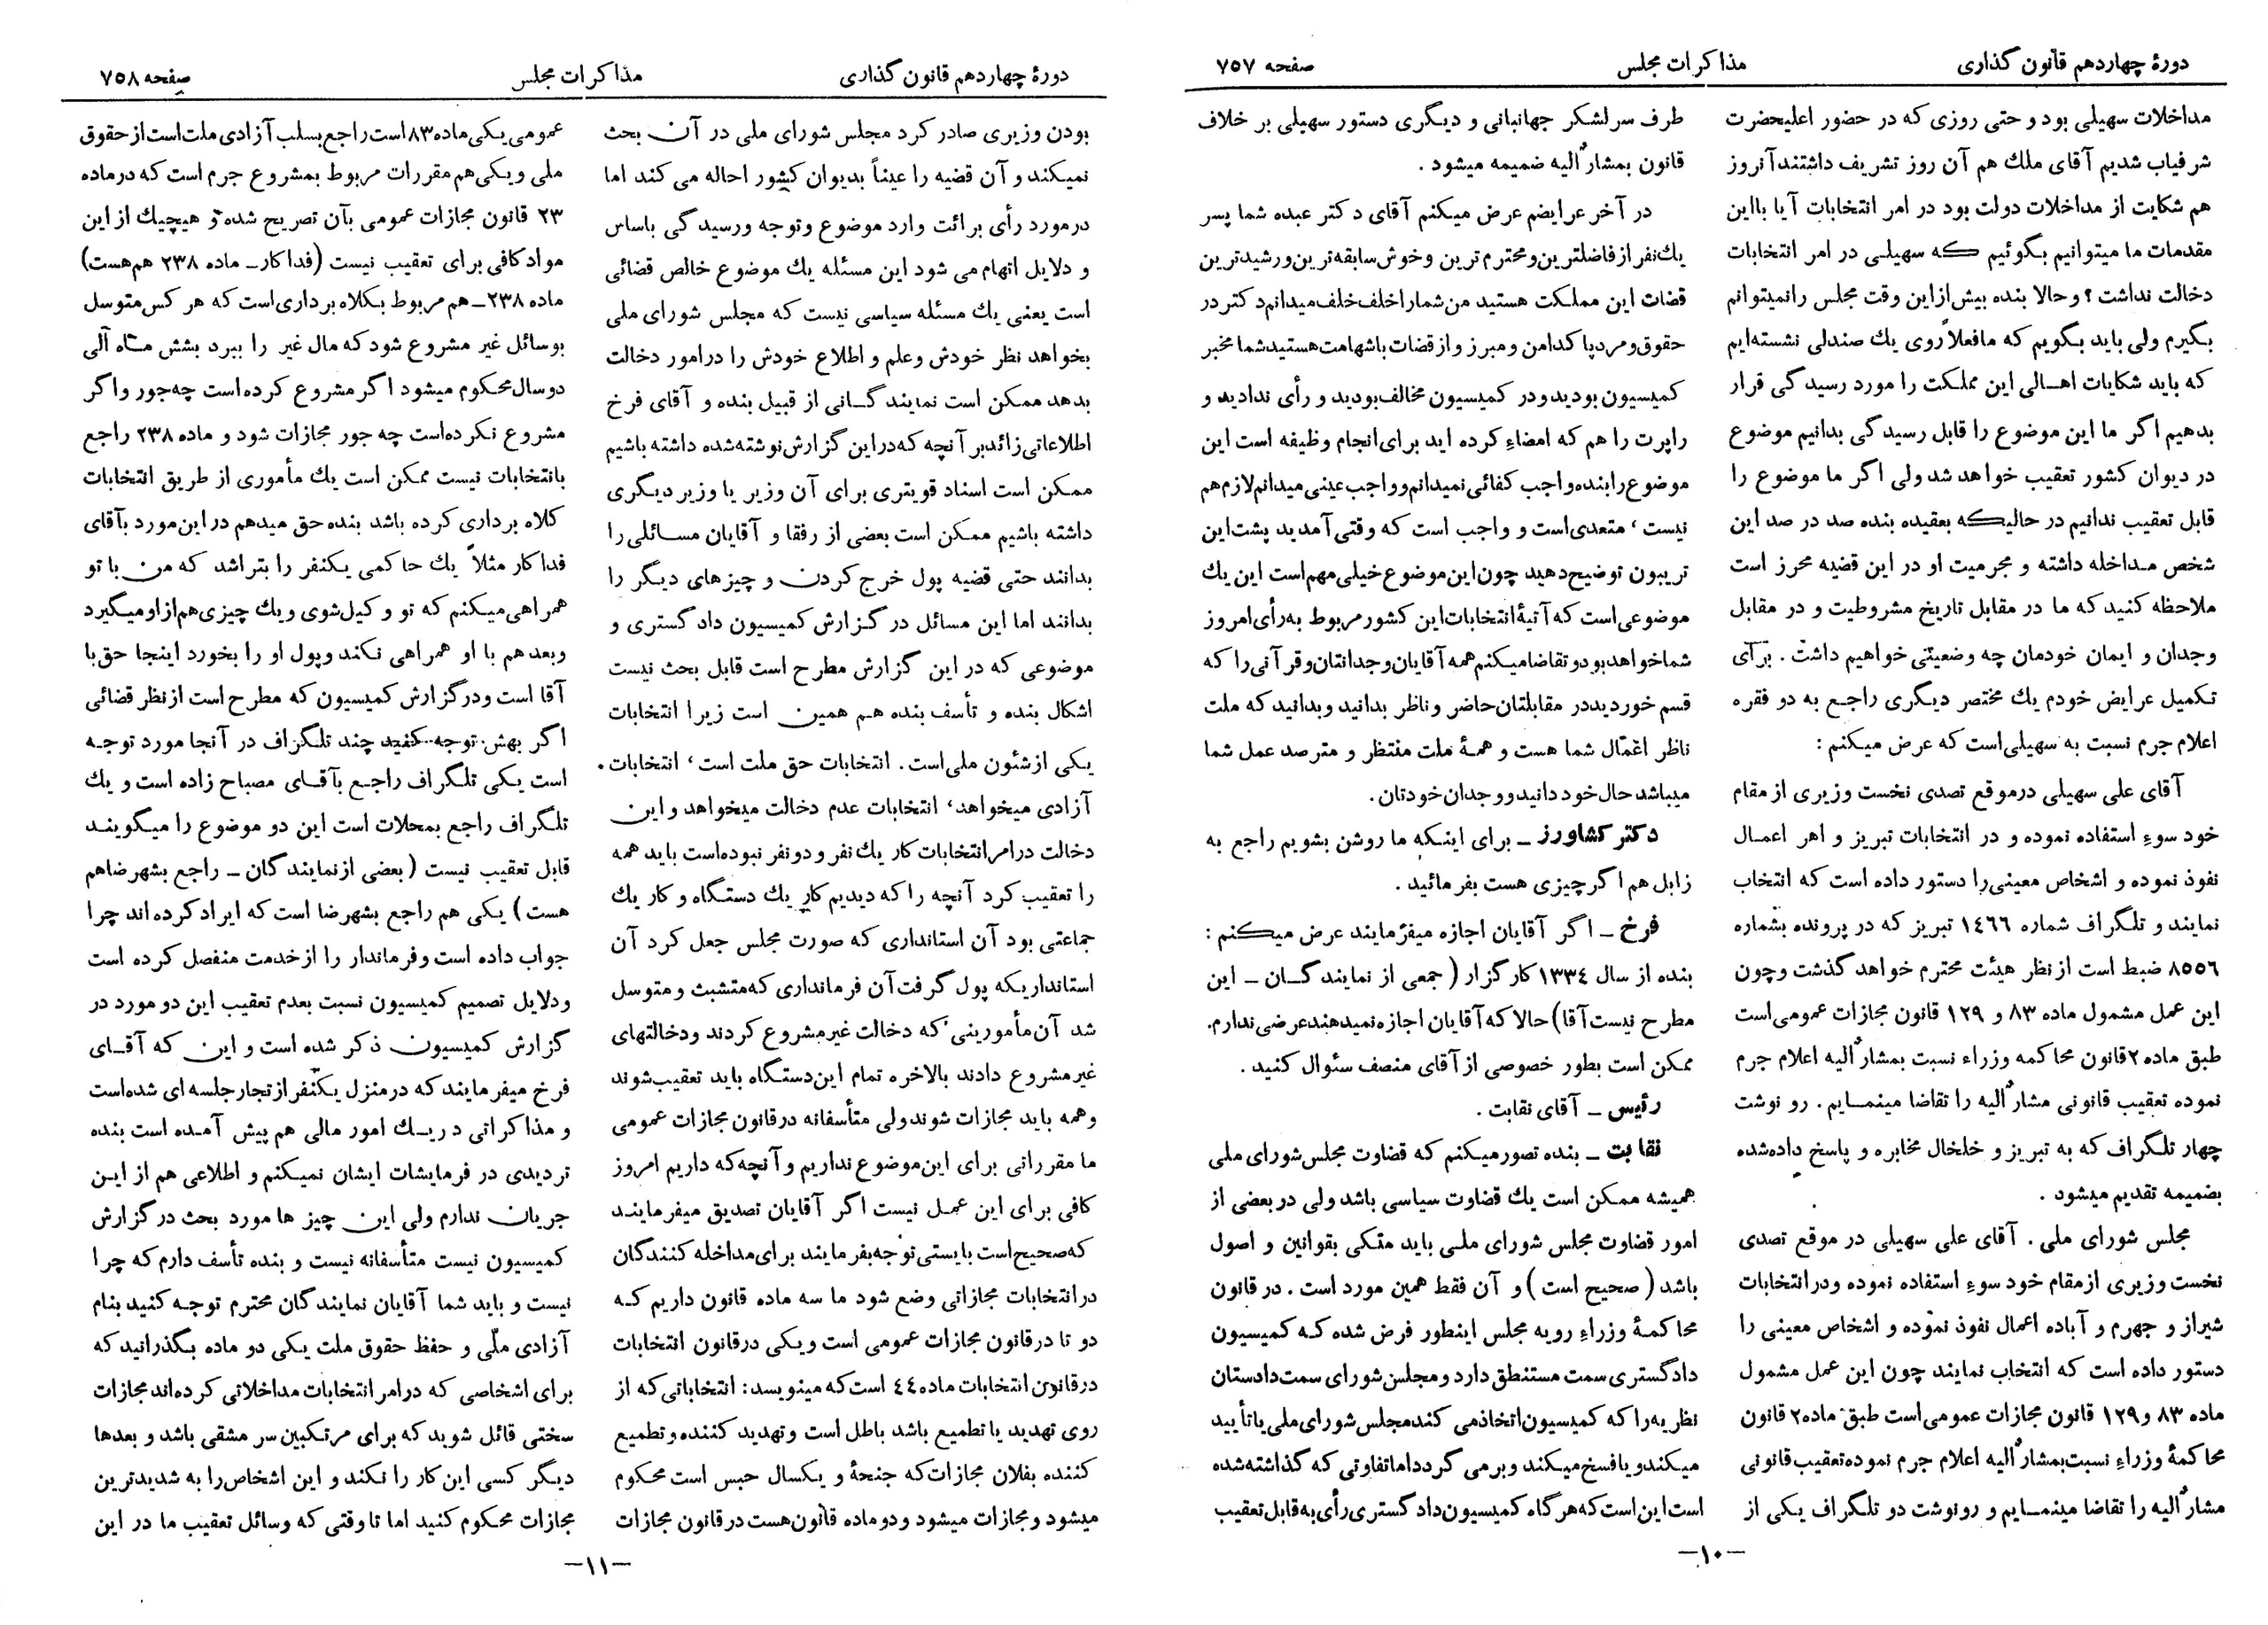 دورهٔ چهاردهم قانون گذاری
مذاکرات مجلس
صفحه ۷۵۷
مداخلات سهیلی بود و حتی روزی که در حضور اعلیحضرت
شرفیاب شدیم آقای ملك هم آن روز تشریف داشتند آنروز
هم شکایت از مداخلات دولت بود در امر انتخابات آیا بااین
مقدمات ما میتوانیم بگوئیم که سهیلی در امر انتخابات
دخالت نداشت ؟ وحالا بنده بیش ازاین وقت مجلس رانمیتوانم
بگیرم ولی باید بگویم که مافعلاً روی یك صندلی نشسته‌ایم
که باید شکایات اهالی این مملکت را مورد رسیدگی قرار
بدهیم اگر ما این موضوع را قابل رسیدگی بدانیم موضوع
در دیوان کشور تعقیب خواهد شد ولی اگر ما موضوع را
قابل تعقیب ندانیم در حالیکه بعقیده بنده صد در صد این
شخص مداخله داشته و مجرمیت او در این قضیه محرز است
ملاحظه کنید که ما در مقابل تاریخ مشروطیت و در مقابل
وجدان و ایمان خودمان چه وضعیتی خواهیم داشت . برای
تکمیل عرایض خودم یك مختصر دیگری راجع به دو فقره
اعلام جرم نسبت به سهیلی است که عرض میکنم :
آقای علی سهیلی درموقع تصدی نخست وزیری از مقام
خود سوء استفاده نموده و در انتخابات تبریز و اهر اعمال
نفوذ نموده و اشخاص معینی را دستور داده است که انتخاب
نمایند و تلگراف شماره ۱٤٦٦ تبریز که در پرونده بشماره
۸۵۵٦ ضبط است از نظر هیئت محترم خواهد گذشت وچون
این عمل مشمول ماده ۸۳ و ۱۲۹ قانون مجازات عمومی است
طبق ماده ۲ قانون محاکمه وزراء نسبت بمشارٌ الیه اعلام جرم
نموده تعقیب قانونی مشارٌ الیه را تقاضا مینمایم . رو نوشت
چهار تلگراف که به تبریز و خلخال مخابره و پاسخ داده‌شده
بضمیمه تقدیم میشود .
مجلس شورای ملی . آقای علی سهیلی در موقع تصدی
نخست وزیری ازمقام خود سوء استفاده نموده ودرانتخابات
شیراز و جهرم و آباده اعمال نفوذ نموده و اشخاص معینی را
دستور داده است که انتخاب نمایند چون این عمل مشمول
ماده ۸۳ و ۱۲۹ قانون مجازات عمومی است طبق ماده۲ قانون
محاکمهٔ وزراء نسبت بمشارٌ الیه اعلام جرم نموده تعقیب قانونی
مشارٌ الیه را تقاضا مینمایم و رونوشت دو تلگراف یکی از
طرف سرلشکر جهانبانی و دیگری دستور سهیلی بر خلاف
قانون بمشارٌ الیه ضمیمه میشود .
در آخر عرایضم عرض میکنم آقای دکتر عبده شما پسر
یك نفر از فاضلترین و محترم ترین وخوش سابقه‌ترین ورشیدترین
قضات این مملکت هستید من شمارا خلف خلف میدانم دکتر در
حقوق و مرد پاکدامن و مبرز و از قضات باشهامت هستید شما مخبر
کمیسیون بودید و در کمیسیون مخالف بودید و رأی ندادید و
راپرت را هم که امضاء کرده اید برای انجام وظیفه است این
موضوع رابنده واجب کفائی نمیدانم و واجب عینی میدانم لازم هم
نیست ، متعدی است و واجب است که وقتی آمدید پشت این
تریبون توضیح دهید چون این موضوع خیلی مهم است این یك
موضوعی است که آتیهٔ انتخابات این کشور مربوط به رأی امروز
شما خواهد بود و تقاضا میکنم همه آقایان وجدانتان و قرآنی را که
قسم خوردید در مقابلتان حاضر و ناظر بدانید و بدانید که ملت
ناظر اعمال شما هست و همهٔ ملت منتظر و مترصد عمل شما
میباشد حال خود دانید و وجدان خودتان.
دکتر کشاورز ــ برای اینکه ما روشن بشویم راجع به
زابل هم اگر چیزی هست بفرمائید .
فرخ ــ اگر آقایان اجازه میفرمایند عرض میکنم :
بنده از سال ۱۳۳٤ کار گزار ( جمعی از نمایندگان ــ این
مطرح نیست آقا) حالا که آقایان اجازه نمیدهند عرضی ندارم.
ممکن است بطور خصوصی از آقای منصف سئوال کنید .
رئیس ــ آقای نقابت .
نقابت ــ بنده تصور میکنم که قضاوت مجلس شورای ملی
همیشه ممکن است یك قضاوت سیاسی باشد ولی در بعضی از
امور قضاوت مجلس شورای ملی باید متکی بقوانین و اصول
باشد ( صحیح است ) و آن فقط همین مورد است . در قانون
محاکمهٔ وزراء رویه مجلس اینطور فرض شده که کمیسیون
دادگستری سمت مستنطق دارد و مجلس شورای سمت دادستان
نظریه را که کمیسیون اتخاذ می کند مجلس شورای ملی یا تأیید
میکند و یا فسخ میکند و برمی گردد اما تفاوتی که گذاشته شده
است این است که هرگاه کمیسیون دادگستری رأی به قابل تعقیب
–۱۰–
دورهٔ چهاردهم قانون گذاری
مذاکرات مجلس
صفحه ۷۵۸
بودن وزیری صادر کرد مجلس شورای ملی در آن بحث
نمیکند و آن قضیه را عیناً بدیوان کشور احاله می کند اما
درمورد رأی برائت وارد موضوع وتوجه ورسیدگی باساس
و دلایل اتهام می شود این مسئله یك موضوع خالص قضائی
است یعنی یك مسئله سیاسی نیست که مجلس شورای ملی
بخواهد نظر خودش وعلم و اطلاع خودش را درامور دخالت
بدهد ممکن است نمایندگانی از قبیل بنده و آقای فرخ
اطلاعاتی زائد بر آنچه که در این گزارش نوشته شده داشته باشیم
ممکن است اسناد قویتری برای آن وزیر یا وزیر دیگری
داشته باشیم ممکن است بعضی از رفقا و آقایان مسائلی را
بدانند حتی قضیه پول خرج کردن و چیزهای دیگر را
بدانند اما این مسائل در گزارش کمیسیون دادگستری و
موضوعی که در این گزارش مطرح است قابل بحث نیست
اشکال بنده و تأسف بنده هم همین است زیرا انتخابات
یکی از شئون ملی است . انتخابات حق ملت است ، انتخابات
آزادی میخواهد ، انتخابات عدم دخالت میخواهد و این
دخالت در امر انتخابات کار یك نفر و دو نفر نبوده است باید همه
را تعقیب کرد آنچه را که دیدیم کار یك دستگاه و کار یك
جماعتی بود آن استانداری که صورت مجلس جعل کرد آن
استانداریکه پول گرفت آن فرمانداری که متشبث و متوسل
شد آن مأمورینی که دخالت غیر مشروع کردند و دخالتهای
غیر مشروع دادند بالاخره تمام این دستگاه باید تعقیب شوند
وهمه باید مجازات شوند ولی متأسفانه در قانون مجازات عمومی
ما مقرراتی برای این موضوع نداریم و آنچه که داریم امروز
کافی برای این عمل نیست اگر آقایان تصدیق میفرمایند
که صحیح است بایستی توجه بفرمایند برای مداخله کنندگان
در انتخابات مجازاتی وضع شود ما سه ماده قانون داریم که
دو تا در قانون مجازات عمومی است و یکی در قانون انتخابات
در قانون انتخابات ماده ٤٤ است که مینویسد : انتخاباتی که از
روی تهدید یا تطمیع باشد باطل است و تهدید کننده و تطمیع
کننده بفلان مجازات که جنحهٔ و یکسال حبس است محکوم
میشود و مجازات میشود و دو ماده قانون هست در قانون مجازات
عمومی یکی ماده ۸۳ است راجع بسلب آزادی ملت است از حقوق
ملی ویکی هم مقررات مربوط بمشروع جرم است که درماده
۲۳ قانون مجازات عمومی بآن تصریح شده و هیچیك از این
مواد کافی برای تعقیب نیست (فداکار ــ ماده ۲۳۸ هم هست)
ماده ۲۳۸ ــ هم مربوط بکلاه برداری است که هر کس متوسل
بوسائل غیر مشروع شود که مال غیر را ببرد بشش ماه الی
دوسال محکوم میشود اگر مشروع کرده است چه جور و اگر
مشروع نکرده است چه جور مجازات شود و ماده ۲۳۸ راجع
بانتخابات نیست ممکن است یك مأموری از طریق انتخابات
کلاه برداری کرده باشد بنده حق میدهم در این مورد بآقای
فداکار مثلاً یك حاکمی یکنفر را بتراشد که من با تو
همراهی میکنم که تو وکیل شوی و یك چیزی هم از او میگیرد
وبعد هم با او همراهی نکند و پول او را بخورد اینجا حق با
آقا است و در گزارش کمیسیون که مطرح است از نظر قضائی
اگر بهش توجه کنید چند تلگراف در آنجا مورد توجه
است یکی تلگراف راجع بآقای مصباح زاده است و یك
تلگراف راجع بمحلات است این دو موضوع را میگویند
قابل تعقیب نیست ( بعضی از نمایندگان ــ راجع بشهرضا هم
هست ) یکی هم راجع بشهرضا است که ایراد کرده اند چرا
جواب داده است و فرماندار را از خدمت منفصل کرده است
ودلایل تصمیم کمیسیون نسبت بعدم تعقیب این دو مورد در
گزارش کمیسیون ذکر شده است و این که آقای
فرخ میفرمایند که در منزل یکنفر از تجار جلسه ای شده است
و مذاکراتی در یك امور مالی هم پیش آمده است بنده
تردیدی در فرمایشات ایشان نمیکنم و اطلاعی هم از این
جریان ندارم ولی این چیز ها مورد بحث در گزارش
کمیسیون نیست متأسفانه نیست و بنده تأسف دارم که چرا
نیست و باید شما آقایان نمایندگان محترم توجه کنید بنام
آزادی ملّی و حفظ حقوق ملت یکی دو ماده بگذرانید که
برای اشخاصی که در امر انتخابات مداخلاتی کرده‌اند مجازات
سختی قائل شوید که برای مرتکبین سر مشقی باشد و بعدها
دیگر کسی این کار را نکند و این اشخاص را به شدیدترین
مجازات محکوم کنید اما تا وقتی که وسائل تعقیب ما در این
–۱۱–